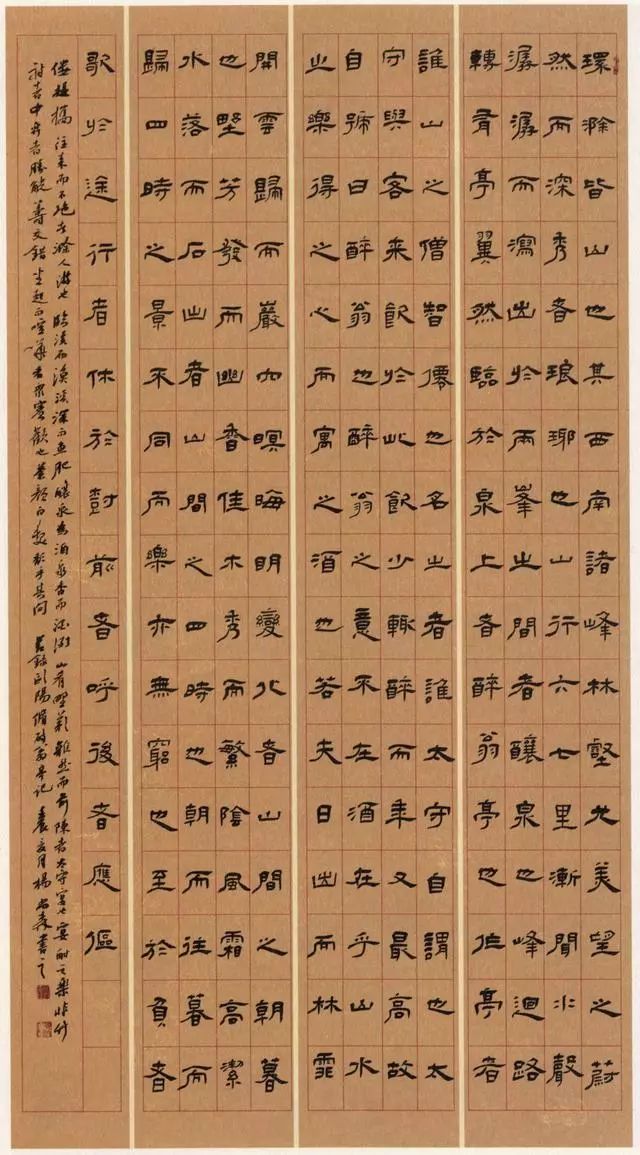 環滁皆山也其西南諸峰林壑尤美望之蔚
然而深秀者琅琊也山行六七里漸聞水聲
潺潺而瀉出於兩峯之間者釀泉也峰迴路
轉有亭翼然臨於泉上者醉翁亭也作亭者
誰山之僧智僊也名之者誰太守自謂也太
守與客來飲於此飲少輒醉而年又最高故
自號曰醉翁也醉翁之意不在酒在乎山水
之樂得之心而寓之酒也若夫日出而林霏
開雲歸而巖穴暝晦明變化者山間之朝暮
也野芳發而幽香佳木秀而繁陰風霜高潔
水落而石出者山間之四時也朝而往暮而
歸四時之景不同而樂亦無窮也至於負者
歌於途行者休於樹前者呼後者應傴
僂提攜往來而不絕者滁人游也臨溪而漁溪深而魚肥釀泉為酒泉香而酒洌山肴野蔌雜然而前陳者太守宴也宴酣之樂非竹
射者中弈者勝觥籌交錯坐起而喧嘩者眾賓歡也蒼顏白髮頹乎其間 錄歐陽脩醉翁亭記 月楊森書之